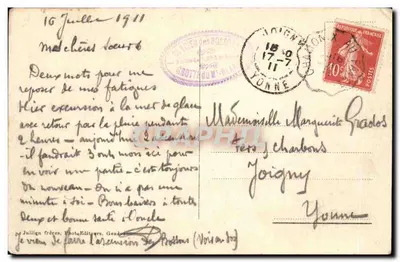 16 Juillet 1911
Mes chères Soeurs
Deux mots pour me
reposer de mes fatigues
Hier excursion à la mer de glace
avec retour par la pluie pendant
2 heures - aujourd'hui
il faudrait 3 mois ici pour
en voir une partie - c'est toujours
du nouveau - On n'a pas une
minute à soi - Bons baisers à toutes
Deux et bonne santé
Jullien Frères, Phot.-Editeurs, Genève
Je viens de faire l'ascension des Bossons (Voir au dos)
JOIGNY
18
17-7
11
YONNE
CHAMONIX
10
POSTES
Mademoiselle Marguerite
Joigny
Yonne